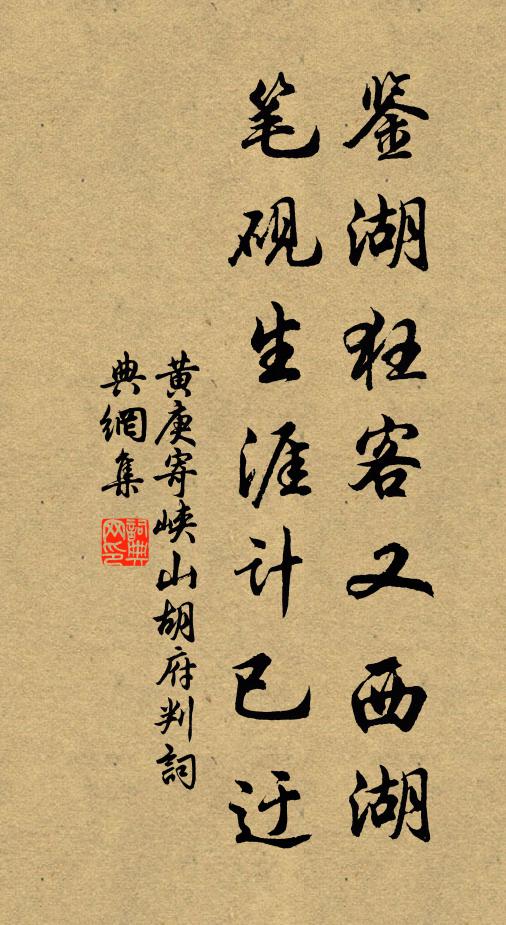 鉴湖狂客又西湖
笔砚生涯计已迂
黄庚寄峡山胡府判詞
典網集
詞典网印